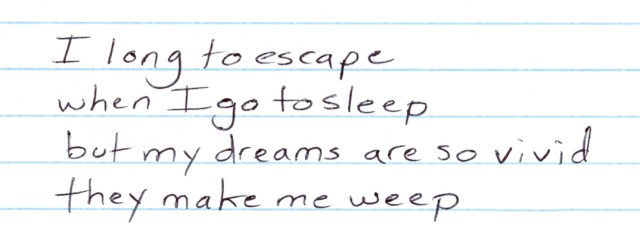 I long to escape
when I go to sleep
but my dreams are so vivid
they make me weep